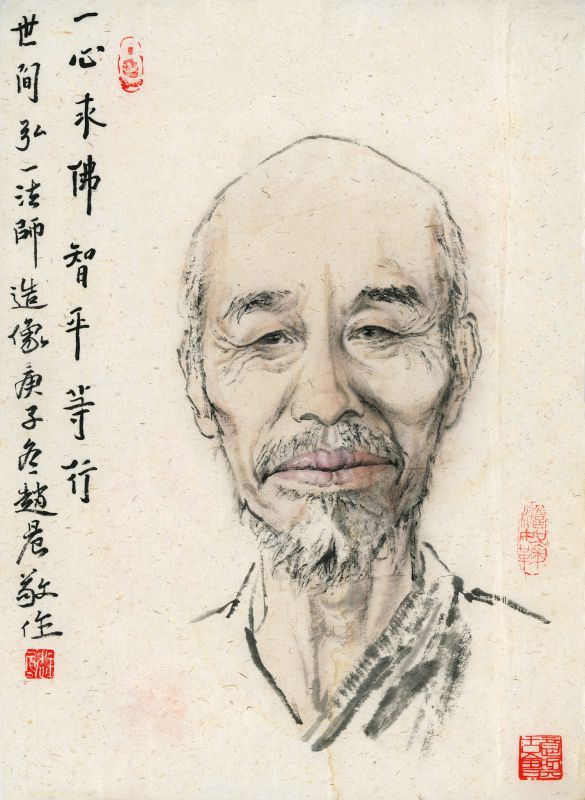 一心求佛智平等行
世间弘一法師造像庚子冬趙晨敬作